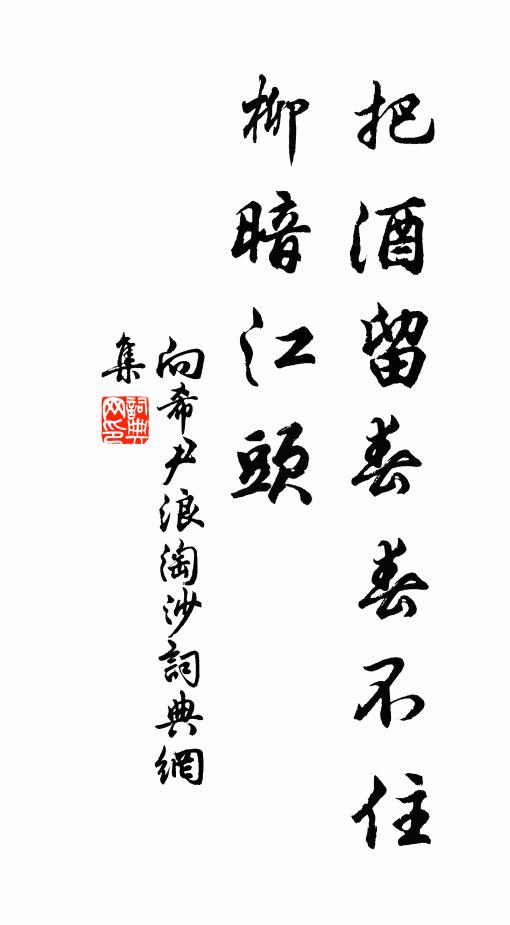 把酒留春春不住
柳暗江頭
向希尹浪淘沙詞典網
集
詞典
网印